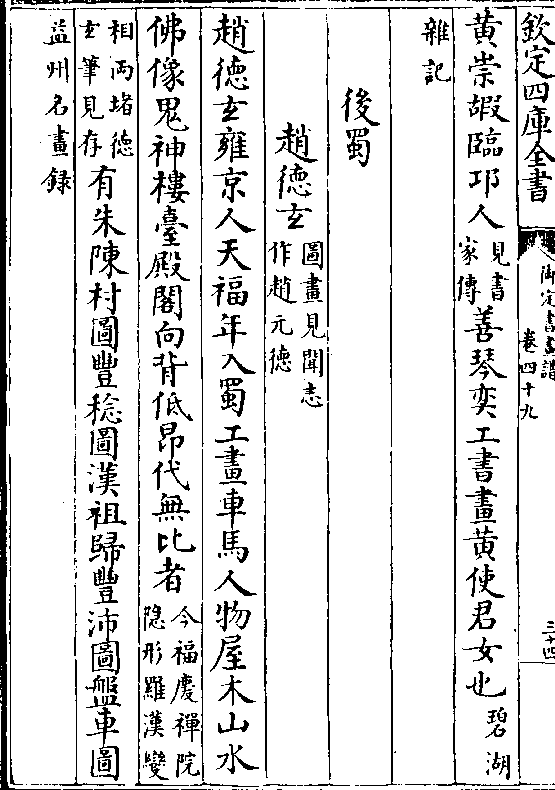 欽定四庫全書
御定書畫譜
卷四十九
三十四
黄崇嘏臨邛人見書家傳善琴奕工書畫黄使君女也碧湖
雜記
後蜀
趙德玄圖畫見聞志作趙元德
趙德玄雍京人天福年入蜀工畫車馬人物屋木山水
佛像鬼神樓臺殿閣向背低昂代無比者今福慶禪院隠形羅漢變
相兩堵德玄筆見存有朱陳村圖豐稔圖漢祖歸豐沛圖盤車圖
益州名畫録